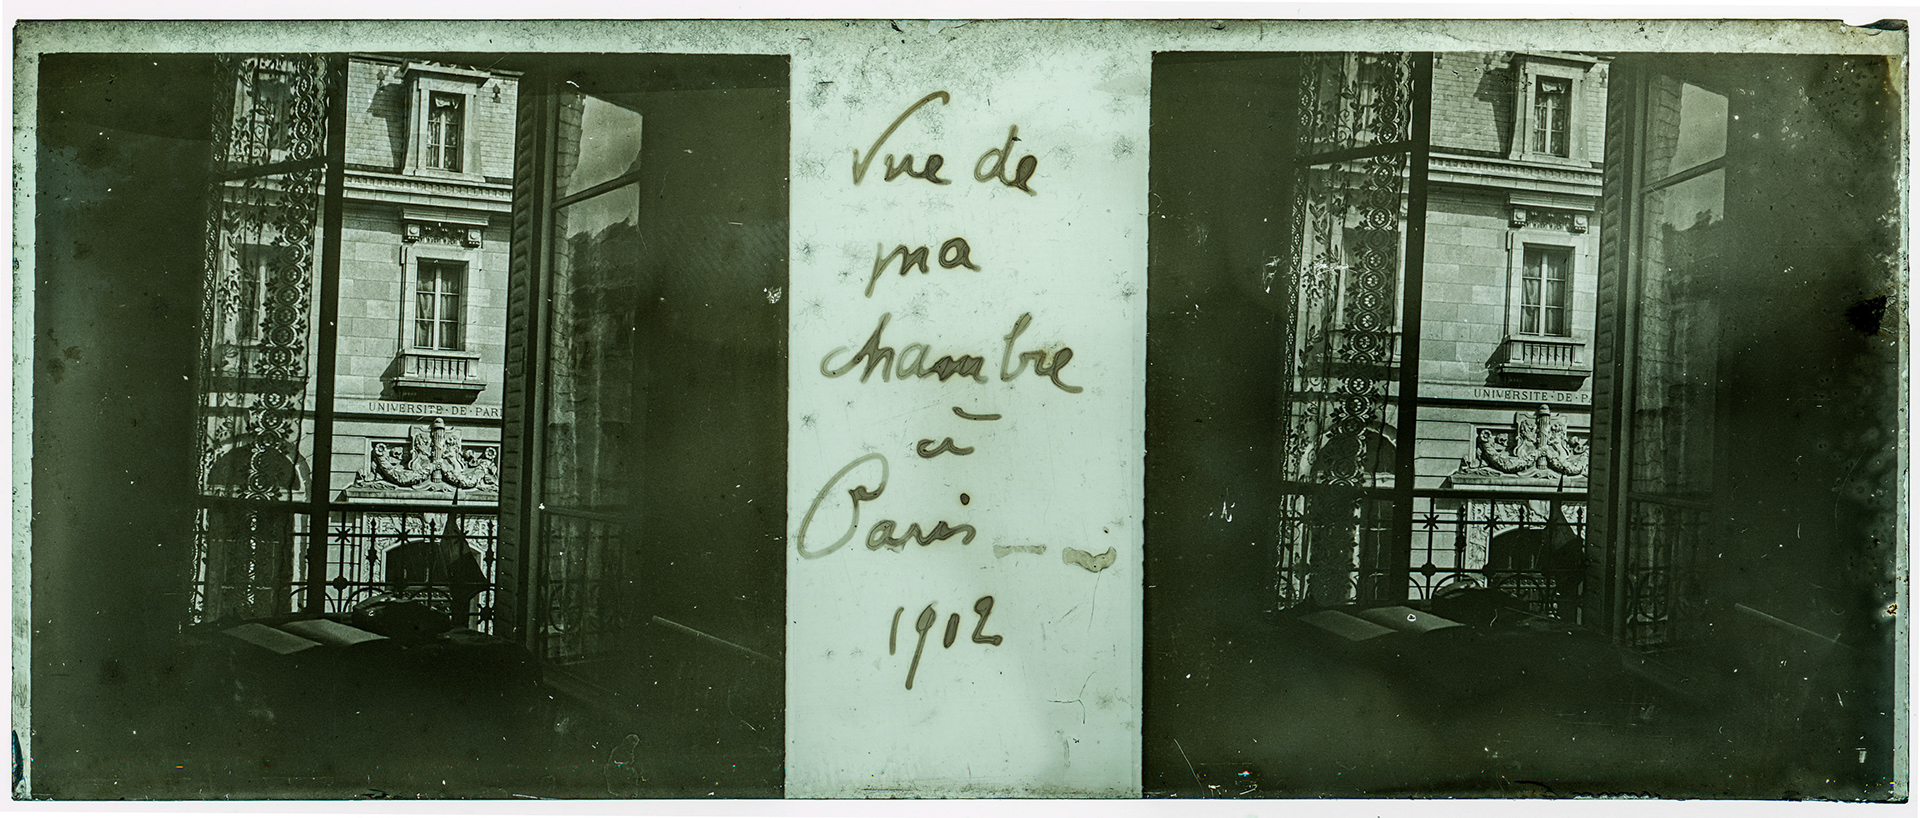 UNIVERSITE·DE·PARI
Vue de
ma
chambre
à
Paris _ _
1912
UNIVERSITE·DE·PA